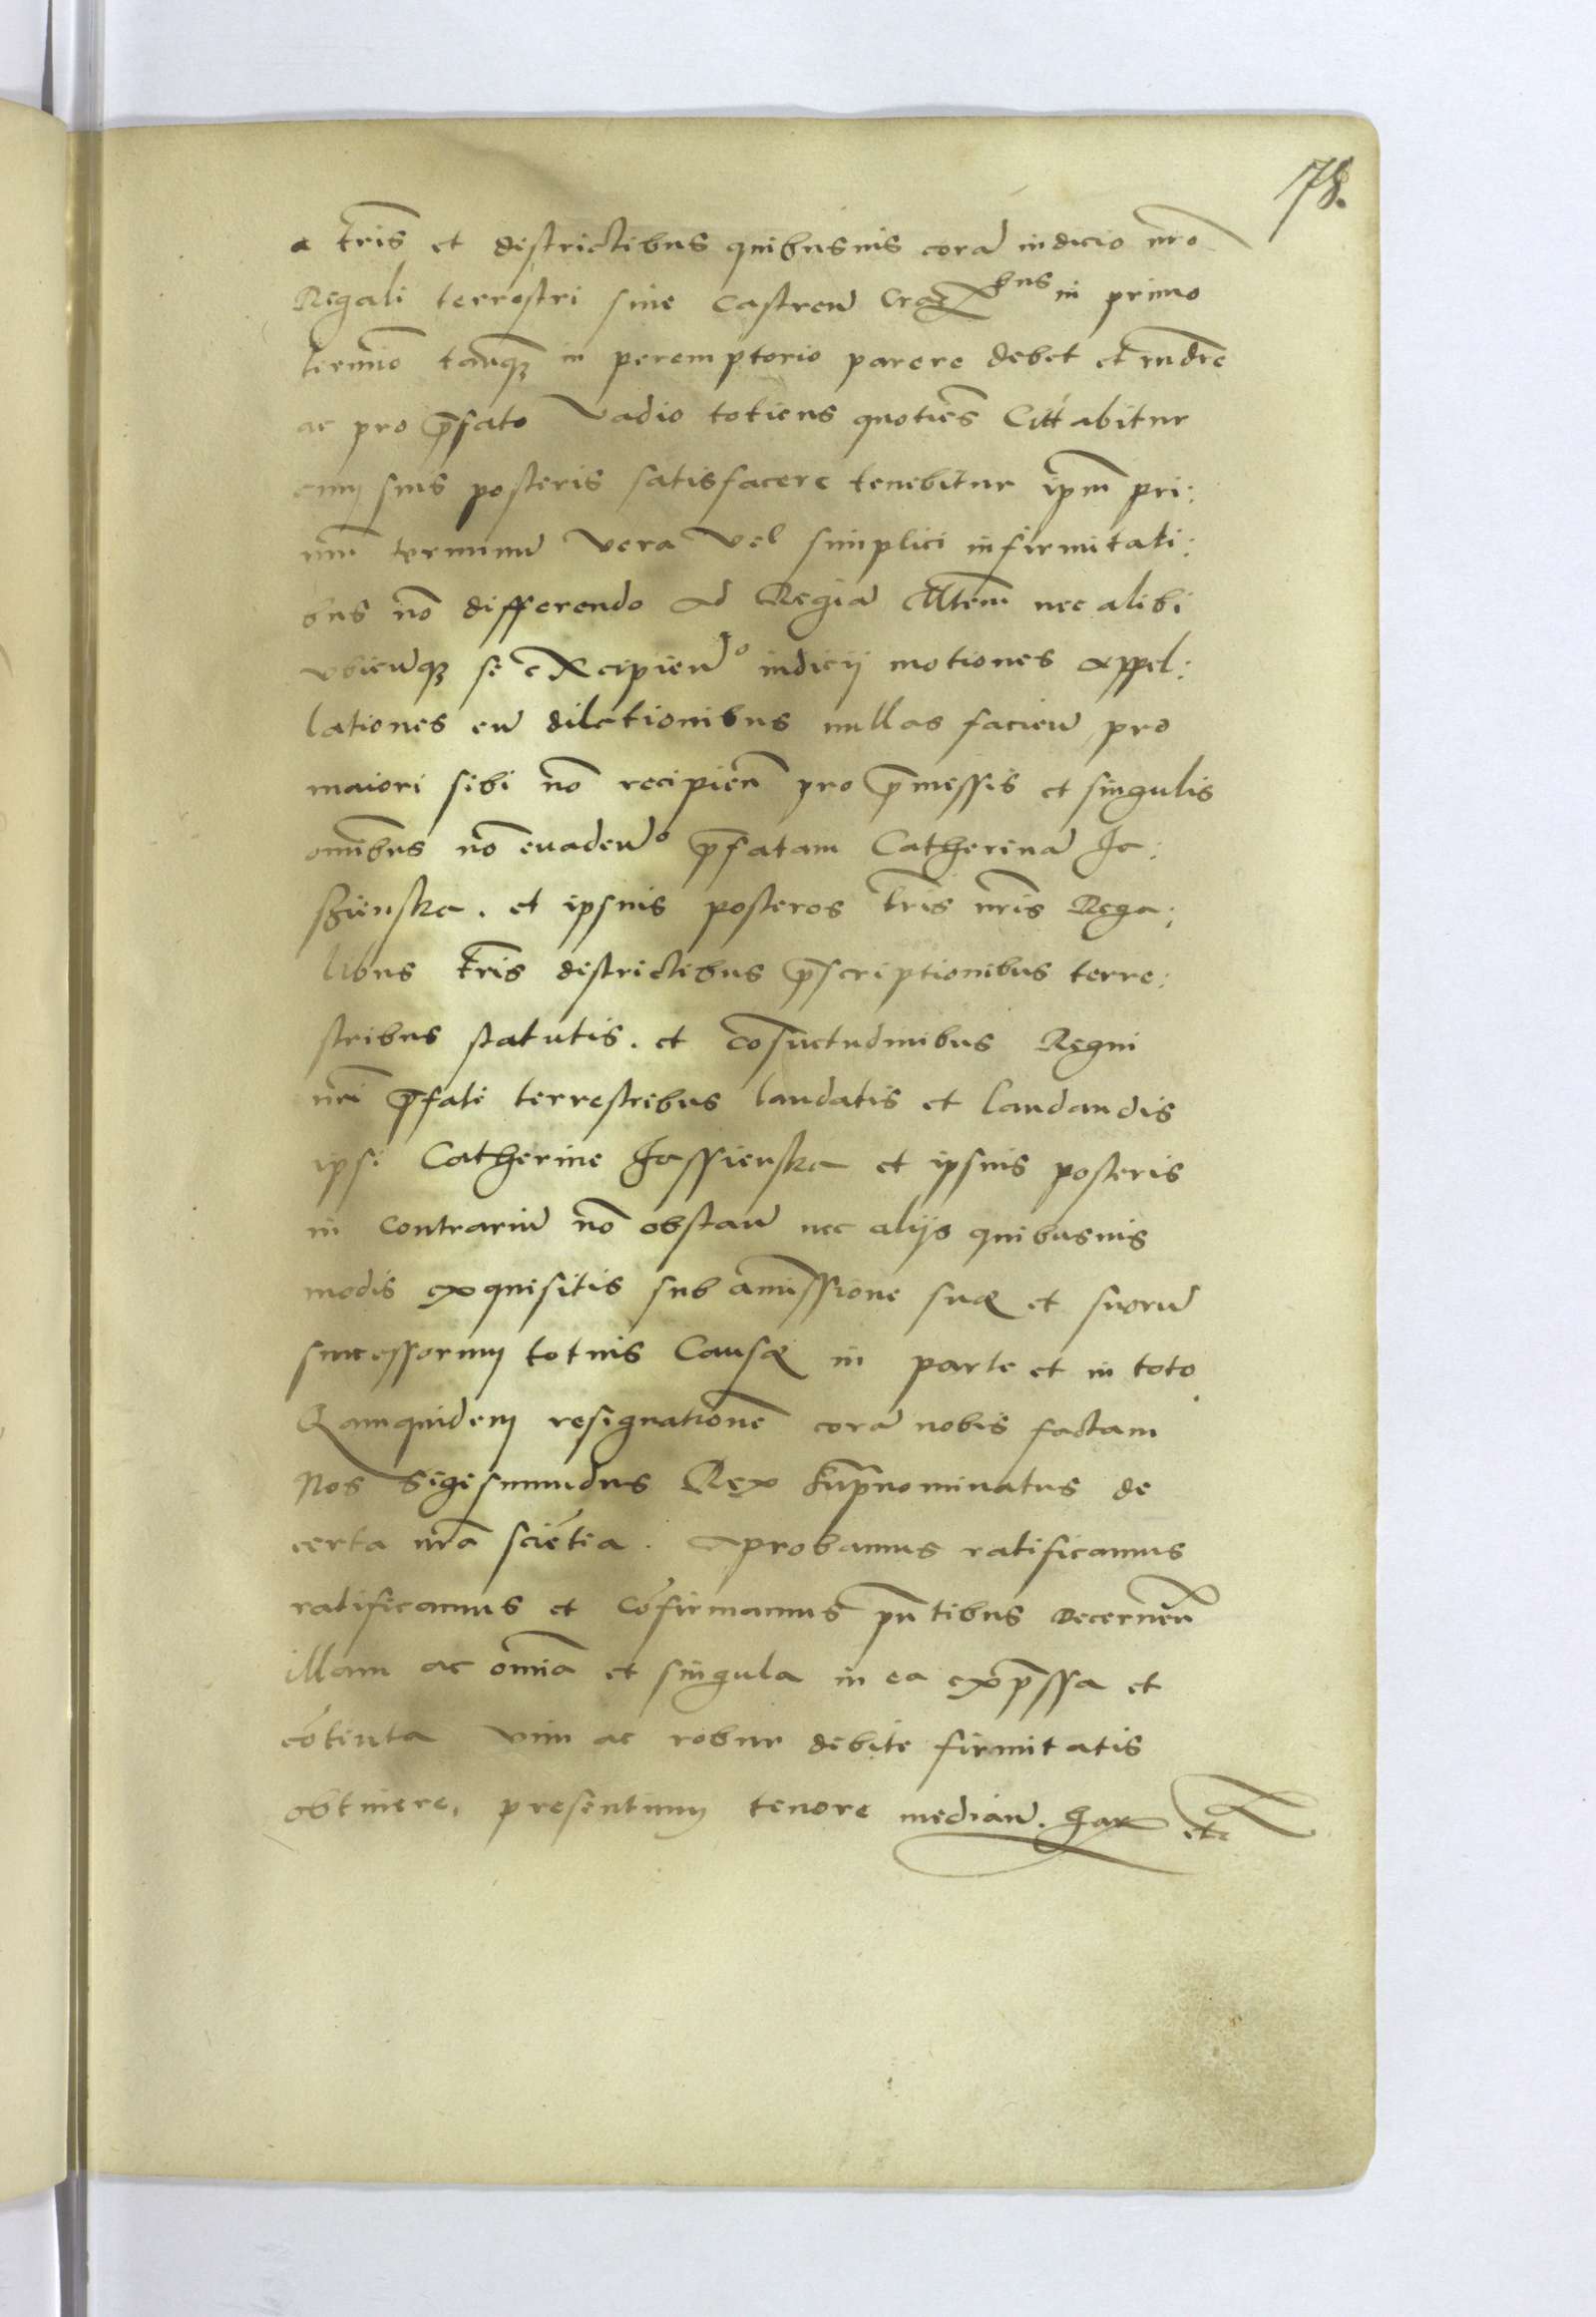 78.
a tris et districtibus quibusuis corā iudicio nrō
Regali terrestri siue Castreñ in primo
termiō tanq̃ in peremptorio parere debet et rndre
ac pro p̄fato Vadio totiens quoties Citt abitur
cum suis posteris satisfacere tenebitur ipm̄ pri:
mū terminū vera vel simplici infirmitati:
bus nō differendo ad Regiā Mtem̄ nec alibi
vbicunq̃ se excipienº iudicij motiones appel:
lationes cū dilationibus nullas facieñ pro
maiori sibi nō recipieñ pro p̄messis et singulis
omībus nō euadenº p̄fatam Catherinā Ja:
sienska. et ipsuis posteros tris nris Rega:
libus tris districtibus p̄scriptionibus terre:
stribus statutis. et cōsuetudinibus Regni
nri p̄fati terrestribus laudatis et laudandis
ipsi Catherine Jassienska et ipsuis posteris
in contrariū nō obstañ nec alijs quibusuis
modis exquisitis sub amissione suæ et suorū
successorum totuis Causæ in parte et in toto
Qamquidem resignationē corā nobis factam
Nos Sigismundus Rex sup̄nominatus de
certa nrā sciētia. Aprobamus ratificamus
ratificamus et Cōfirmamus pn̄tibus Decerneñ
illam ac omīa et singula in ea exp̄ssa et
cōtenta vim ac robur debite firmitatis
obtinere, presentium tenore mediañ. har etc